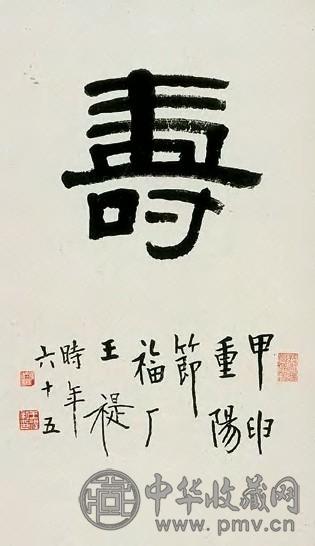 壽
甲申
重陽
節
福厂
王禔
時年
六十五
中华收藏网
www.pmv.cn